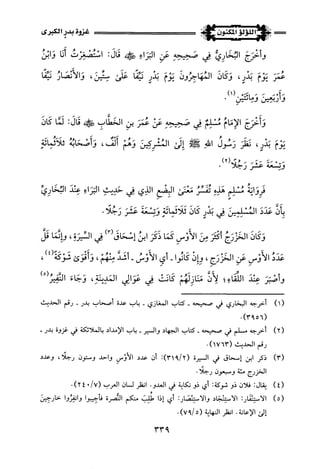 اللؤلؤ المكنون
غزوة بدر الكبرى
وأَخْرَجَ البُخَارِيُّ فِي صَحِيحِهِ عَنِ البَرَاءِ ﷺ قَالَ: اسْتُصْغِرْتُ أَنَا وَابْنُ
عُمَرَ يَوْمَ بَدْرٍ، وَكَانَ المُهَاجِرُونَ يَوْمَ بَدْرٍ نَيِّفًا عَلَى سِتِّينَ، وَالأَنْصَارُ نَيِّفًا
وَأَرْبَعِينَ وَمِائَتَيْنِ(١).
وَأَخْرَجَ الإِمَامُ مُسْلِمٌ فِي صَحِيحِهِ عَنْ عُمَرَ بنِ الخَطَّابِ ﷺ قَالَ: لَمَّا كَانَ
يَوْمَ بَدْرٍ، نَظَرَ رَسُولُ اللهِ ﷺ إِلَى المُشْرِكِينَ وَهُمْ أَلْفٌ، وَأَصْحَابُهُ ثَلَاثُمِائَةٍ
وَتِسْعَةَ عَشَرَ رَجُلًا(٢).
فَرِوَايَةُ مُسْلِمٍ هَذِهِ تُفَسِّرُ مَعْنَى البِضْعِ الذِي فِي حَدِيثِ البَرَاءِ عِنْدَ البُخَارِيِّ
بِأَنَّ عَدَدَ المُسْلِمِينَ فِي بَدْرٍ كَانَ ثَلَاثَمِائَةٍ وَتِسْعَةَ عَشَرَ رَجُلًا.
وَكَانَ الخَزْرَجُ أَكْثَرَ مِنَ الأَوْسِ كَمَا ذَكَرَ ابنُ إِسْحَاقَ(٣) فِي السِّيرَةِ، وَإِنَّمَا قَلَّ
عَدَدُ الأَوْسِ عَنِ الخَزْرَجِ، وإِنْ كَانُوا، أي الأَوْسُ، أَشَدَّ مِنْهُمْ، وَأَقْوَى شَوْكَةً(٤)،
وأَصْبَرَ عِنْدَ اللِّقَاءِ؛ لِأَنَّ مَنَازِلَهُمْ كَانَتْ فِي عَوَالِي المَدِينَةِ، وَجَاءَ النَّفِيرُ(٥)
(١) أخرجه البخاري في صحيحه ـ كتاب المغازي ـ باب عدة أصحاب بدر ـ رقم الحديث
(٣٩٥٦).
(٢) أخرجه مسلم في صحيحه ـ كتاب الجهاد والسير ـ باب الإمداد بالملائكة في غزوة بدر ـ
رقم الحديث (١٧٦٣).
(٣) ذكر ابن إسحاق في السيرة (٣١٩/٢): أن عدد الأَوْسِ واحد وستون رجلًا، وعدد
الخزرج مئة وسبعون رجلًا.
(٤) يقال: فلان ذو شوكة: أي ذو نكاية في العدو. انظر لسان العرب (٢٤٠/٧).
(٥) الاستِنْفَار: الاستِنْجَاد والاستِنْصَار: أي إذا طُلِبَ منكم النُّصرة فأجِيبوا وانفِرُوا خارجِينَ
إلى الإعانة. انظر النهاية (٧٩/٥).
٣٣٩